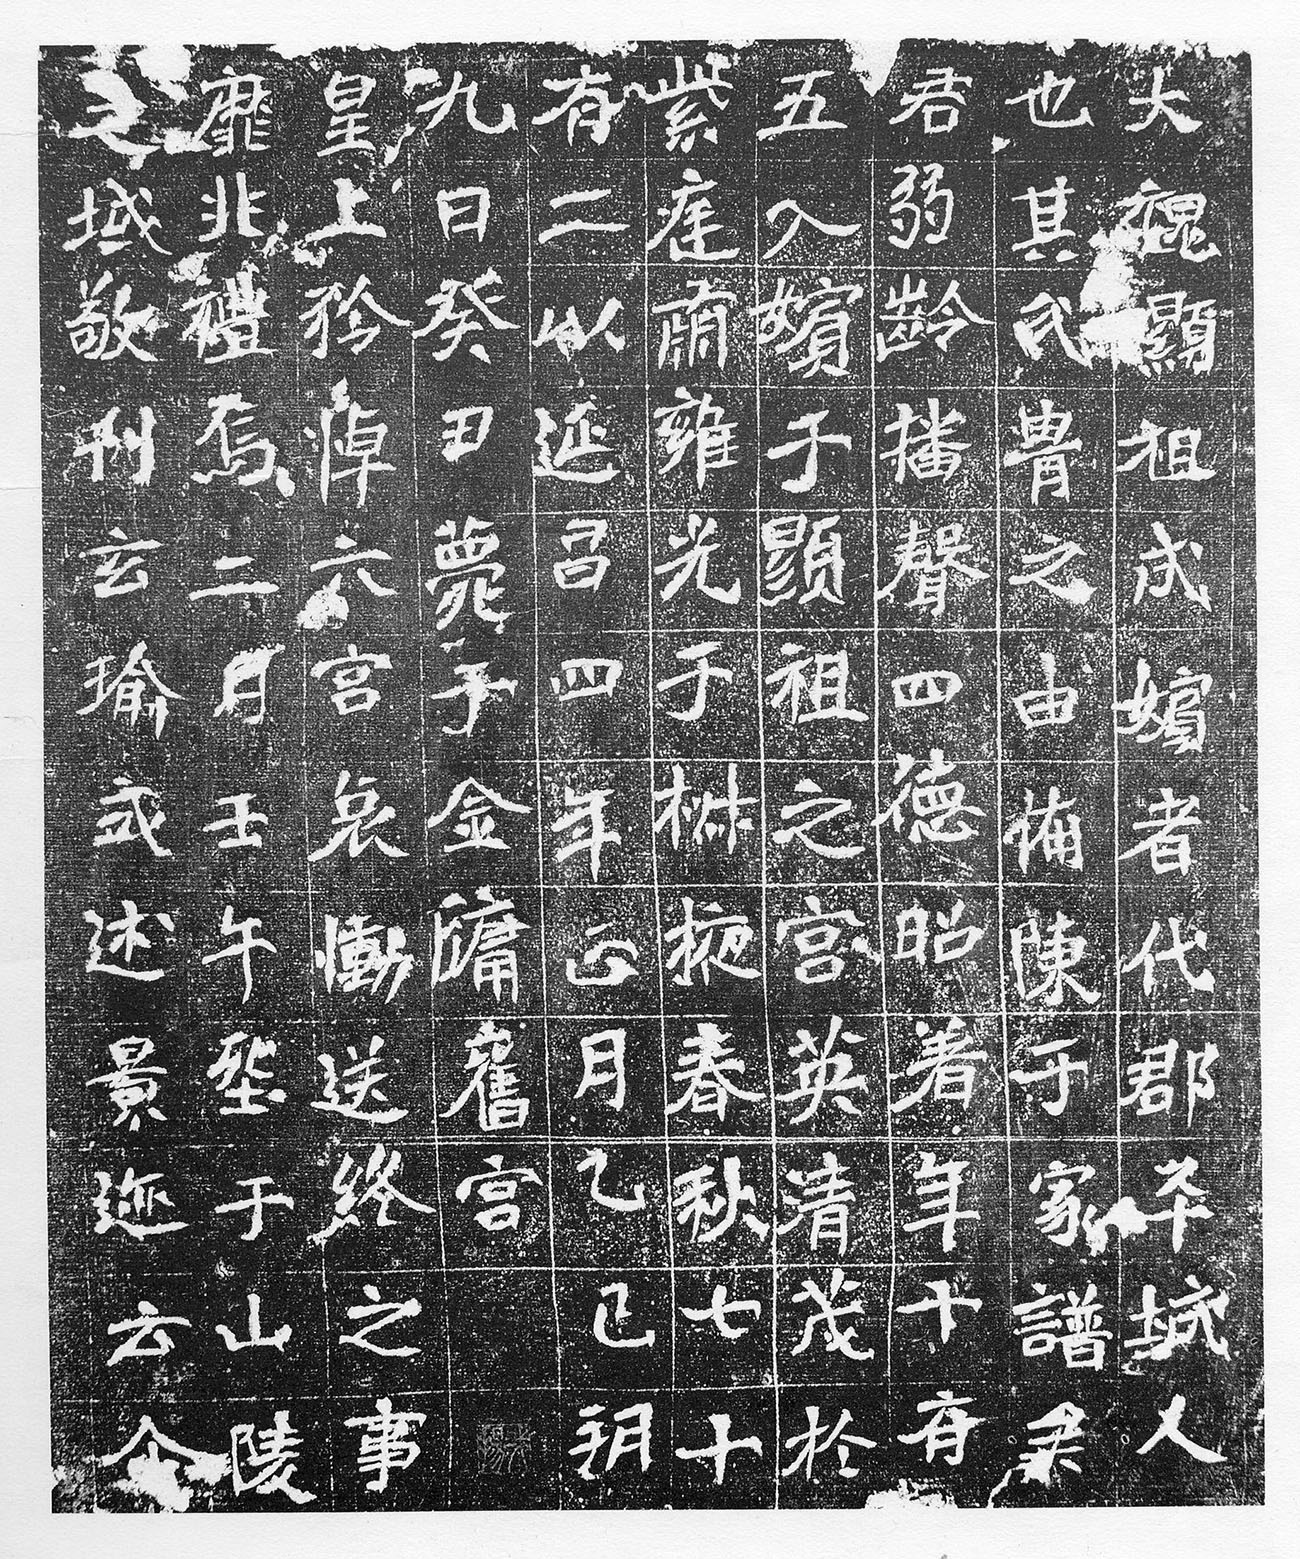 大魏顯祖成嬪者代郡平城人
也其氏胄之由備陳于家譜矣
君弱齡播聲四德昭著年十有
五入嬪于顯祖之宮英清茂於
紫庭肅雍光于椒掖春秋七十
有二以延昌四年正月乙巳朔
九日癸丑薨于金墉舊宮
皇上矜悼六宮哀慟送終之事
靡非禮焉二月壬午于山陵
之域敬刊玄瑜式述景迹云尒